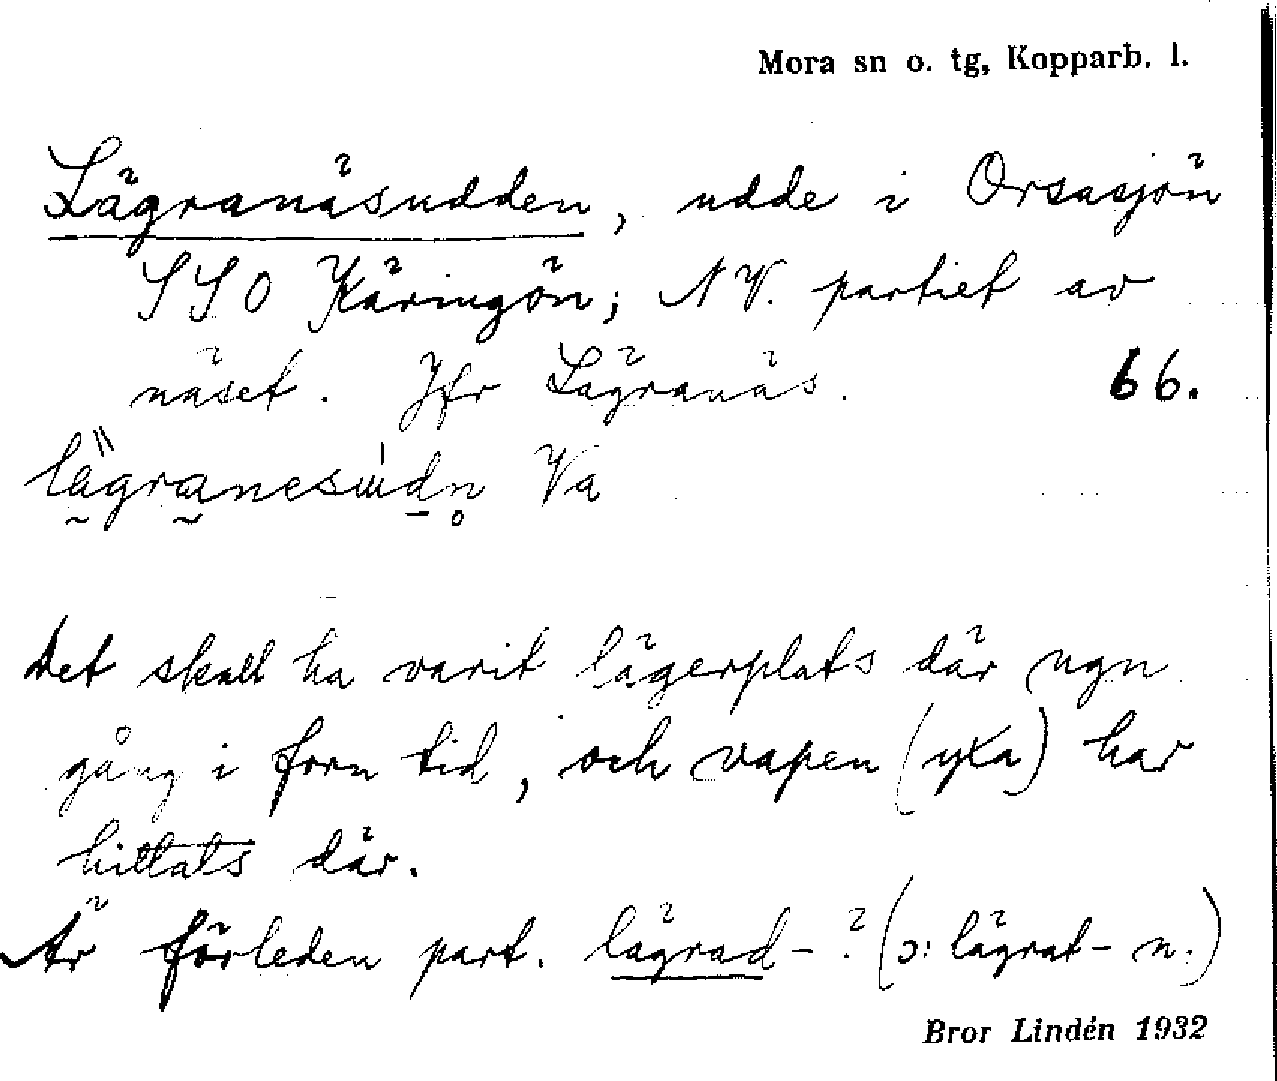 Mora sn o. tg, Kopparb. l.
Lägranäsudden, udde i Orsasjön
SSO Käringön; NV. partiet av
näset. Jfr Lägranäs. 66.
lägranesudn Va
Det skall ha varit lägerplats där ngn
gång i forn tid, och vapen (yxa) har
hittats där.
Är förleden part. lägrad-? (ɔ: lägrat- n.)
Bror Lindén 1932